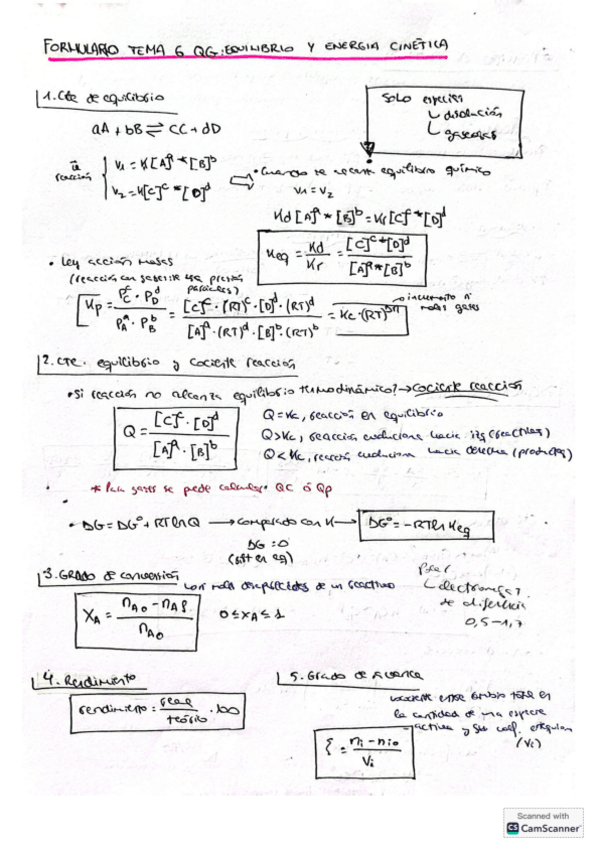 FORMULARIO TEMA 6 QG: EQUILIBRIO Y ENERGIA CINÉTICA
1. Cte de equilibrio
aA + bB ⇌ cC + dD
Solo especies
disolución
gaseosas
reacción
V1 = K[A]^a * [B]^b
V2 = K[C]^c * [D]^d
equilibrio químico
V1 = V2
Kd [A]^a * [B]^b = Kr [C]^c * [D]^d
Keq = Kd / Kr = [C]^c * [D]^d / [A]^a * [B]^b
• Ley acción masas
Kp = P_C^c · P_D^d / P_A^a · P_B^b = [C]^c · (RT)^c · [D]^d · (RT)^d / [A]^a · (RT)^a · [B]^b · (RT)^b = Kc · (RT)^Δn
incremento nº
moles gases
2. Cte. equilibrio y cociente reacción
• Si reacción no alcanza equilibrio termodinámico? → cociente reacción
Q = [C]^c · [D]^d / [A]^a · [B]^b
Q = Kc, reacción en equilibrio
Q > Kc, reacción evoluciona hacia izq (reactivos)
Q < Kc, reacción evoluciona hacia derecha (productos)
* Para gases se puede calcular QC ó Qp
• DG = DG° + RT ln Q → comparado con K → DG° = -RT ln Keq
DG = 0
3. GRADO de conversión
moles desaparecidos de un reactivo
XA = nA0 - nAf / nA0
0 ≤ XA ≤ 1
electronegat.
de diferencia
0,5 - 1,7
4. Rendimiento
rendimiento = real / teórico · 100
5. Grado de Avance
cociente entre cambio total en
la cantidad de una especie
activa y su coef.
(Vi)
ξ = ni - ni0 / Vi
Scanned with
CS CamScanner